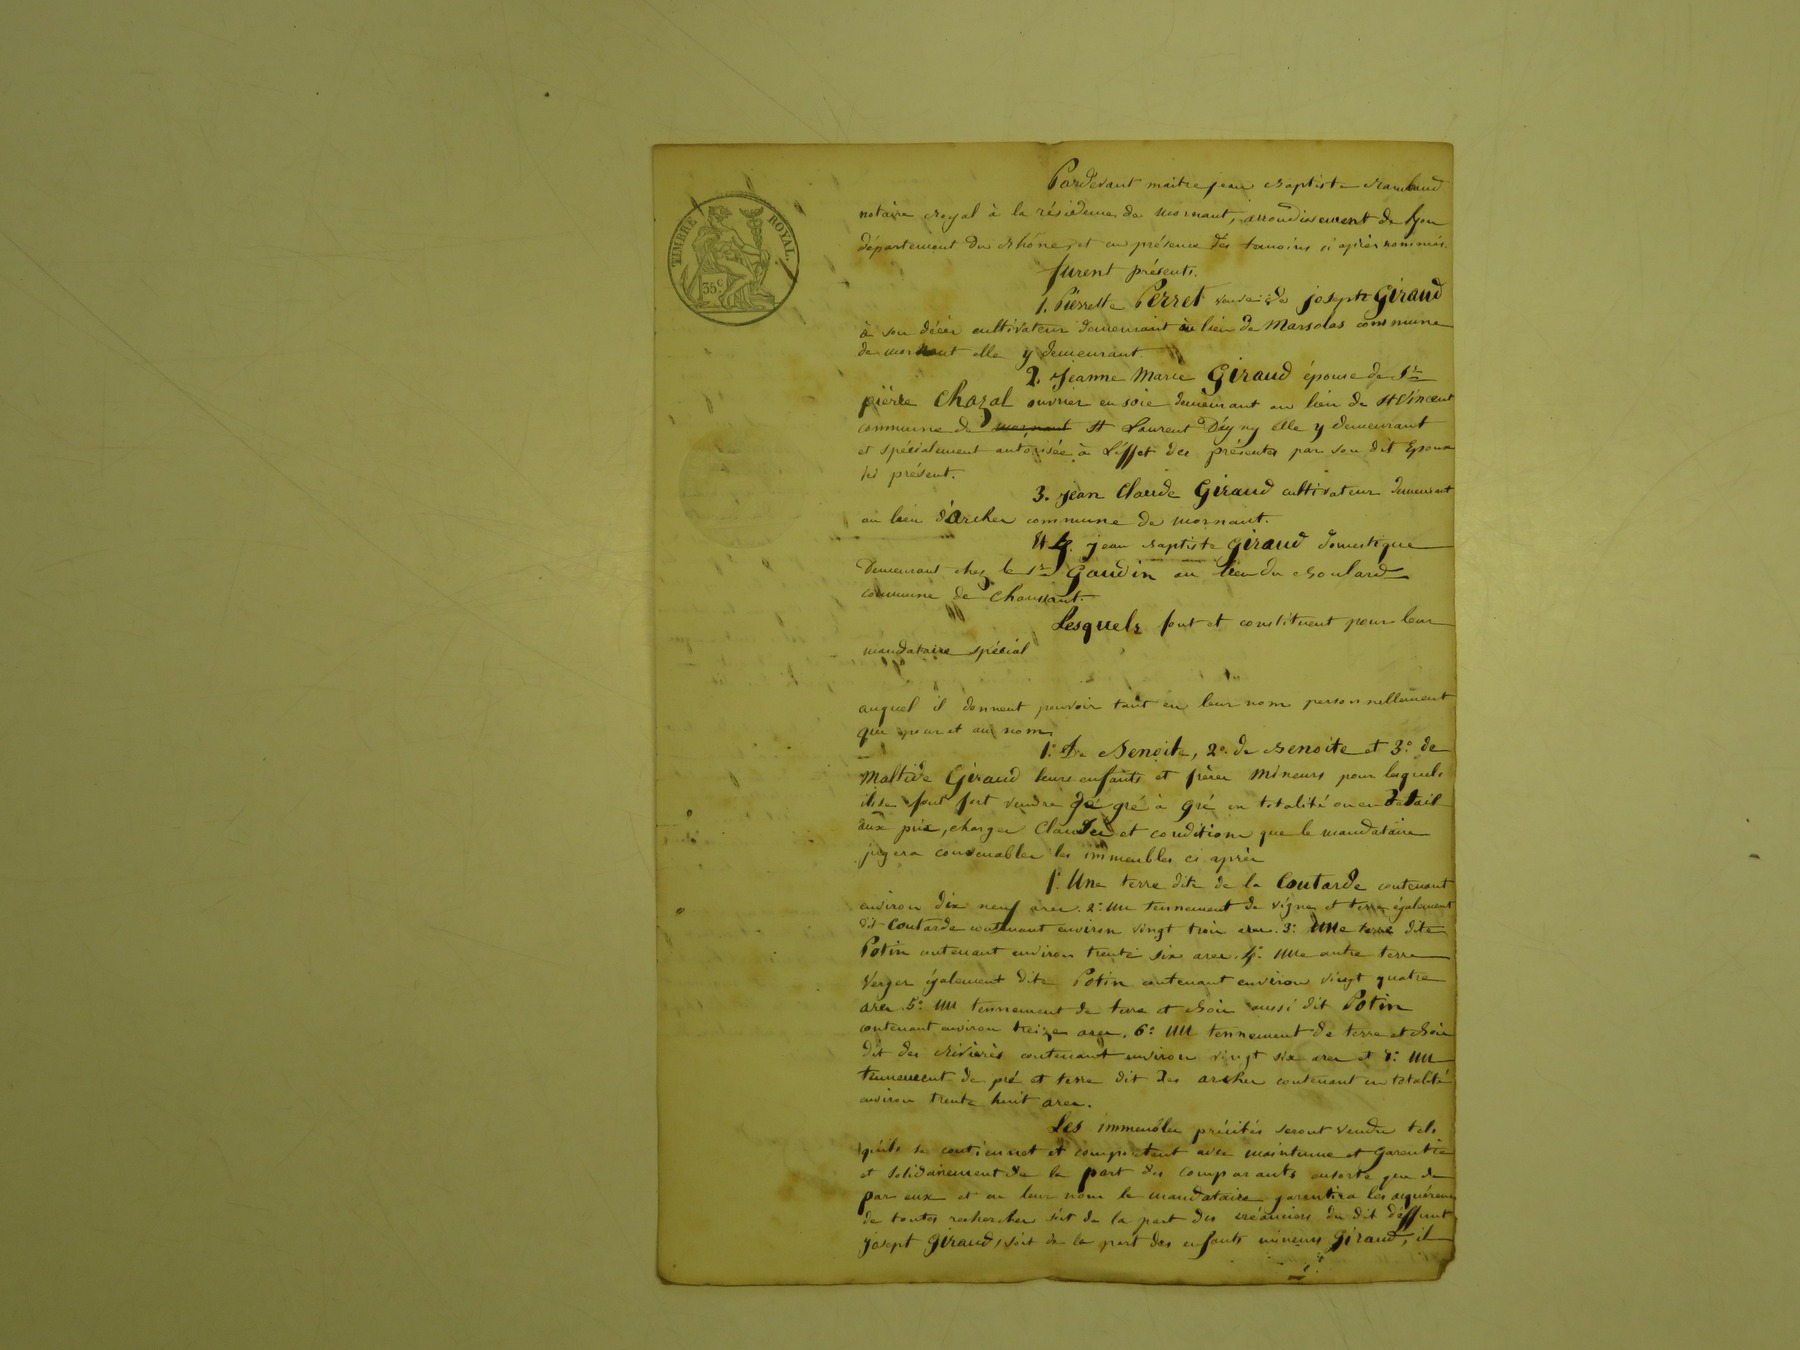 TIMBRE ROYAL.
35c
Pardevant maitre jean Baptiste Rambaud
notaire Royal à la résidence de Mornant, arrondissement de Lyon
département du Rhône, et en présence des temoins ci après nommés.
furent présents.
1. Pierrette Perret veuve de joseph Giraud
à son décès cultivateur demeurant au lieu de Marsolas commune
de mornant elle y demeurant.
2. Jeanne Marie Giraud épouse de Sr
pierre Chazal ouvrier en soie demeurant au lieu de St Vincent
commune de mornant St Laurent D'agny elle y demeurant
et spécialement autorisée à L'éffet des présentes par son dit Epoux
ici présent.
3. Jean Claude Giraud cultivateur demeurant
au lieu d'Archer commune de mornant.
Et 4. jean Baptiste Giraud domestique
Demeurant chez le Sr Gaudin au lieu du Boulard
commune de Chaussant.
Lesquels font et constituent pour leur
mandataire spécial
auquel il donnent pouvoir tant en leur nom personnellement
que pour et au nom
1º De Benoite, 2º de Benoite et 3º de
Maltide Giraud leurs enfants et frères mineurs pour lesquels
ils se font fort vendre de gré à gré en totalité ou en détail
aux prix, charges Clauses et conditions que le mandataire
jugera convenables les immeubles ci après
1º Une terre dite de la Coutarde contenant
environ dix neuf ares. 2º un tennement de vigne et terre également
dit Coutarde contenant environ vingt trois ares. 3º une terre dite
Potin contenant environ trente six ares. 4º une autre terre
Verger également dite Potin contenant environ vingt quatre
ares. 5º un tennement de terre et Bois aussi dit Potin
contenant environ treize ares. 6º un tennement de terre et Bois
dit des Rivières contenant environ vingt six ares et 7º un
tennement de pré et terre dit des archer contenant en totalité
environ trente huit ares.
Les immeubles précités seront vendu tels
qu'ils se contiennet et comportent avec maintenue et garentie
et solidairement de la part des comparants ensorte que de
par eux et en leur nom le mandataire garentira les acquéreurs
de toutes recherches soit de la part des créanciers du dit déffunt
josept Giraud, soit de la part des enfants mineurs Giraud, il